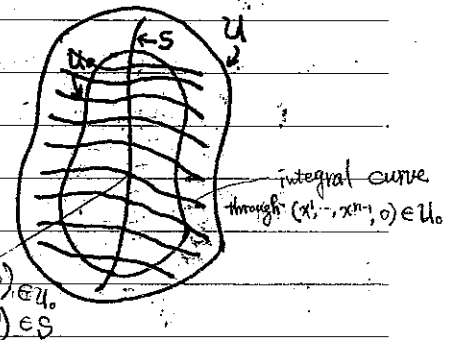 ← S
U
U₀
integral curve
through (x¹, ..., xⁿ⁻¹, 0) ∈ U₀
) ∈ U₀
) ∈ S